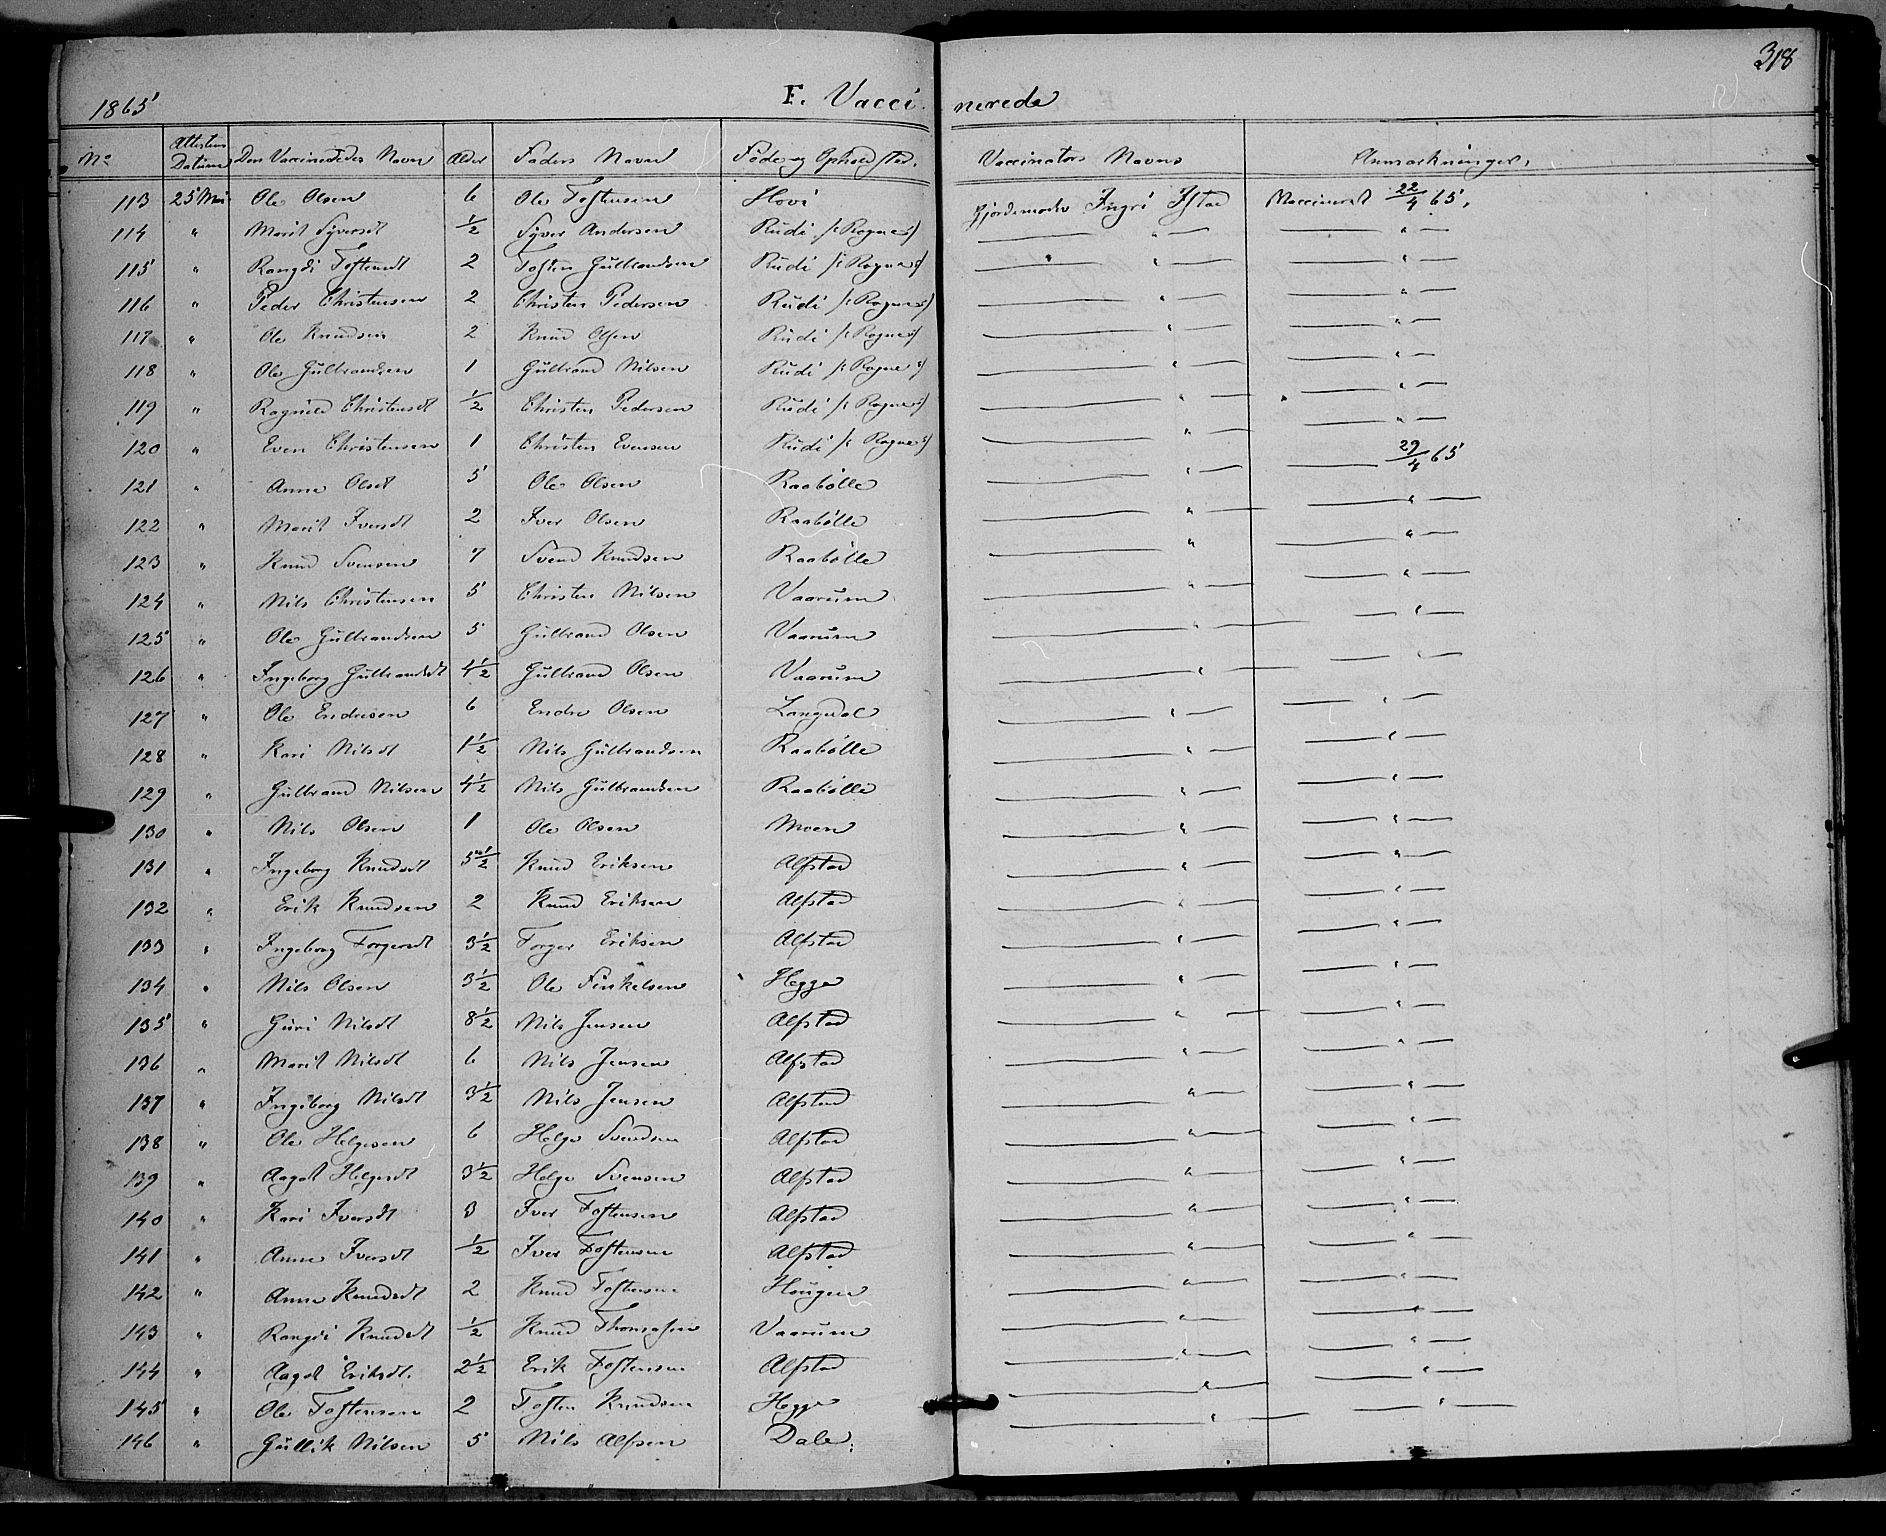 318
1865 F. Vaccinerede
No Attestens Datum Den Vaccineredes Navn Alder Faders Navn Føde og Opholdsted. Vaccinators Navn Anmærkninger.
113 25 Mai Ole Olsen 6 Ole Tostensen Hovi Gjordemoder Ingri Ystad Vaccineret 22/4 65.
114 " Marit Syversdt 1/2 Syver Andersen Rudi /: Rogne :/ — " — — " —
115 " Rangdi Tostensdt 2 Tosten Gulbrandsen Rudi /: Rogne :/ — " — — " —
116 " Peder Christensen 2 Christen Pedersen Rudi /: Rogne :/ — " — — " —
117 " Ole Knudsen 2 Knud Olsen Rudi /: Rogne :/ — " — — " —
118 " Ole Gulbrandsen 1 Gulbrand Nilsen Rudi /: Rogne :/ — " — — " —
119 " Ragnild Christensdt 1/2 Christen Pedersen Rudi /: Rogne :/ — " — — " —
120 " Even Christensen 1 Christen Evensen Rudi /: Rogne :/ — " — — " —
121 " Anne Olsdt 5 Ole Olsen Raabølle — " — — 29/4 65
122 " Marit Iversdt 2 Iver Olsen Raabølle — " — — " —
123 " Knud Svensen 7 Svend Knudsen Raabølle — " — — " —
124 " Nils Christensen 5 Christen Nilsen Vaarum — " — — " —
125 " Ole Gulbrandsen 5 Gulbrand Olsen Vaarum — " — — " —
126 " Ingeborg Gulbrandsdt 4 1/2 Gulbrand Olsen Vaarum — " — — " —
127 " Ole Endresen 6 Endre Olsen Langedal — " — — " —
128 " Kari Nilsdt 1 1/2 Nils Gulbrandsen Raabølle — " — — " —
129 " Gulbrand Nilsen 4 1/2 Nils Gulbrandsen Raabølle — " — — " —
130 " Nils Olsen 1 Ole Olsen Moen — " — — " —
131 " Ingeborg Knudsdt 5 1/2 Knud Eriksen Alfstad — " — — " —
132 " Erik Knudsen 2 Knud Eriksen Alfstad — " — — " —
133 " Ingeborg Torgersdt 3 1/2 Torger Eriksen Alfstad — " — — " —
134 " Nils Olsen 3 1/2 Ole Finkelsen Hegge — " — — " —
135 " Guri Nilsdt 8 1/2 Nils Jensen Alfstad — " — — " —
136 " Marit Nilsdt 6 Nils Jensen Alfstad — " — — " —
137 " Ingeborg Nilsdt 3 1/2 Nils Jensen Alfstad — " — — " —
138 " Ole Helgesen 6 Helge Svendsen Alfstad — " — — " —
139 " Aagot Helgesdt 3 1/2 Helge Svensen Alfstad — " — — " —
140 " Kari Iversdt 3 Iver Tostensen Alfstad — " — — " —
141 " Anne Iversdt 1/2 Iver Tostensen Alfstad — " — — " —
142 " Anne Knudsdt 2 Knud Tostensen Haugen — " — — " —
143 " Rangdi Knudsdt 1/2 Knud Thomasen Vaarum — " — — " —
144 " Aagot Eriksdt. 2 1/2 Erik Tostensen Alfstad — " — — " —
145 " Ole Tostensen 2 Tosten Knudsen Hegge — " — — " —
146 " Gullik Nilsen 5 Nils Alfsen Dale. — " — — " —